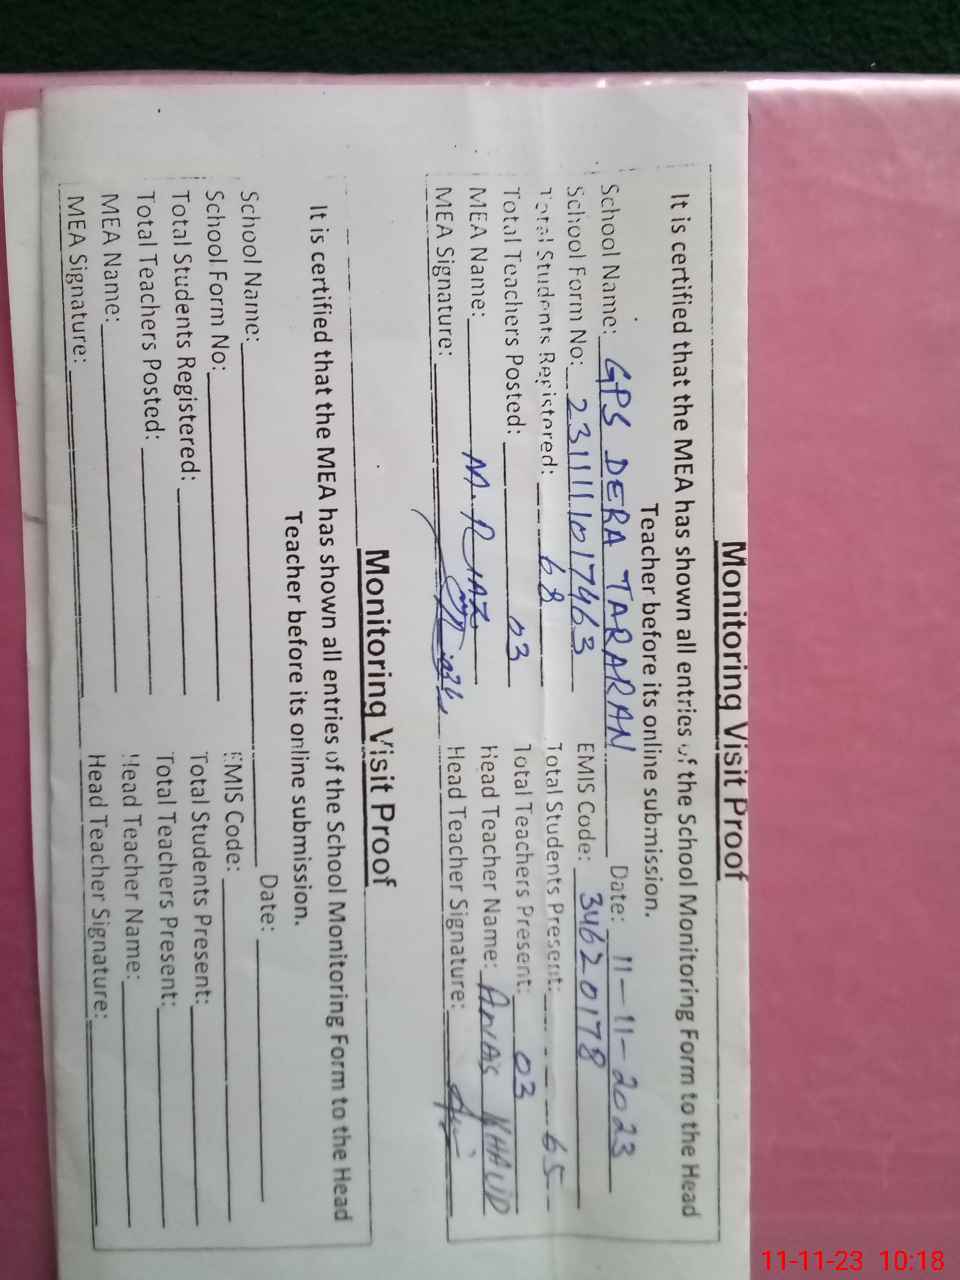 Monitoring Visit Proof
It is certified that the MEA has shown all entries of the School Monitoring Form to the Head
Teacher before its online submission.
School Name: GPS DERA TARARAN Date: 11-11-2023
School Form No: 231111017463 EMIS Code: 34620178
Total Students Registered: 68 Total Students Present: 65
Total Teachers Posted: 03 Total Teachers Present: 03
MEA Name: M. RIAZ Head Teacher Name: KHALID
MEA Signature: Head Teacher Signature:
Monitoring Visit Proof
It is certified that the MEA has shown all entries of the School Monitoring Form to the Head
Teacher before its online submission.
School Name: Date:
School Form No: EMIS Code:
Total Students Registered: Total Students Present:
Total Teachers Posted: Total Teachers Present:
MEA Name: Head Teacher Name:
MEA Signature: Head Teacher Signature:
11-11-23 10:18